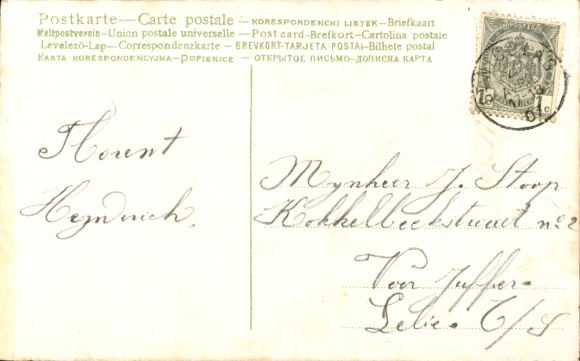 Postkarte — Carte postale — KORESPONDENCNI LISTEK — Briefkaart
Weltpostverein — Union postale universelle — Post card — Brefkort — Cartolina postale
Levelező-Lap — Correspondenzkarte — BREVKORT — TARJETA POSTAL — Bilhete postal
KARTA KORESPONDENCYJNA — DOPISNICE — ОТКРЫТОЕ ПИСЬМО — ДОПИСНА КАРТА
Florent
Heyndrich.
Mynheer J. Stoop
Kokkelbeekstraat no 2
Voor Juffer